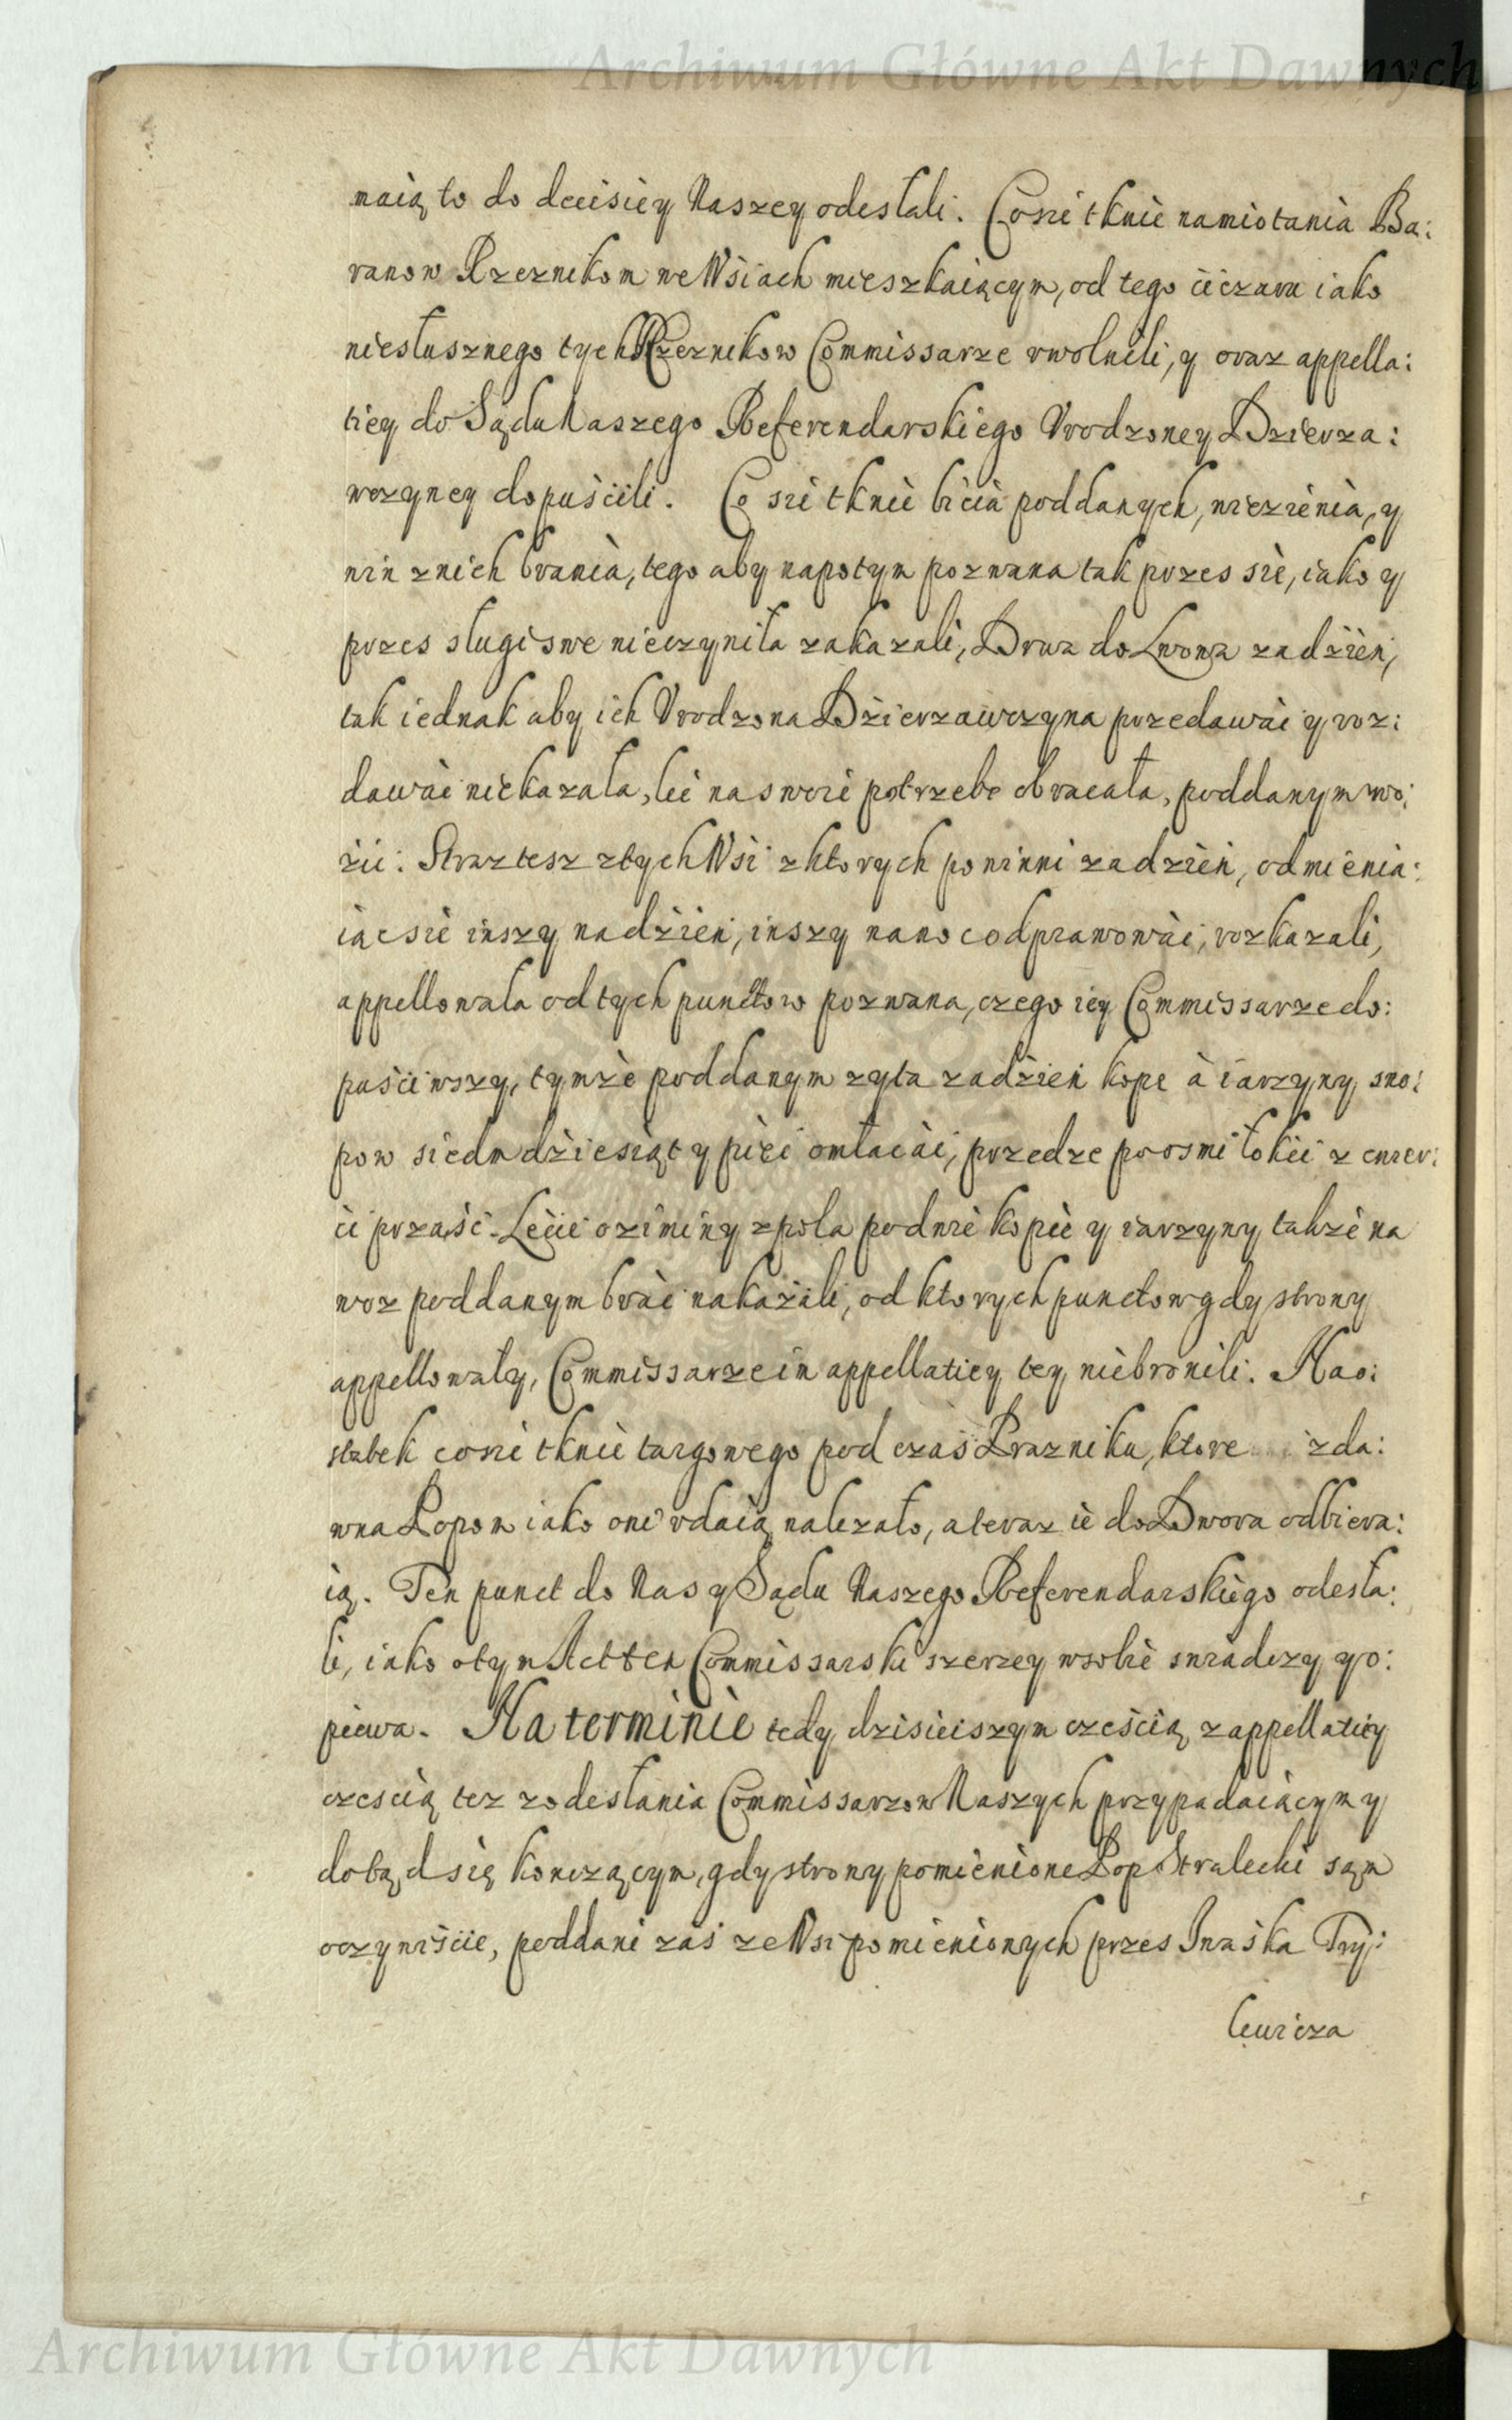 Archiwum Główne Akt Dawnych
maią to do decisiey Naszey odesłali. Co sie tknie namiotania Ba:
ranow Rzeznikom we Wsiach mieszkaiącym, od tego ciężaru iako
niesłusznego tych Rzeznikow Commissarze vwolnili, y oraz appella:
tiey do Sądu Naszego Referendarskiego Vrodzoney Dzierza:
wczyney dopuścili. Co sie tknie bicia poddanych, więzienia, y
win znich brania, tego aby napotym pozwana tak przes sie, iako y
przes sługi swe nieczyniła zakazali, Drwa do Lwowa za dzień,
tak iednak aby ich Vrodzona Dzierzawczyna przedawać y roz:
dawać niekazała, lec na swoie potrzebe obracała, poddanym wo:
zić: Straz tesz ztych Wsi zktorych powinni za dzień, odmienia:
iąc sie inszy na dzień, inszy na noc odprawować, rozkazali,
appellowała od tych punctow pozwana, czego iey Commissarze do:
puściwszy, tymże poddanym zyta za dzień kope à iarzyny sno:
pow siedmdziesiąt y pięć omłacać, przedze po osmi łokci z cwier:
ci prząść. Lecie oziminy z pola po dwie kopie y iarzyny także na
woz poddanym brać nakazali, od ktorych punctow gdy strony
appellowały, Commissarze im appellatiey tey niebronili. Nao:
statek co sie tknie targowego pod czas Prazniku, ktore zda:
wna Popom iako oni vdaią nalezało, a teraz ie do Dwora odbiera:
ią. Ten punct do Nas y Sądu Naszego Referendarskiego odesła:
li, iako otym Act ten Commissarski szerzey wsobie swiadczy y o:
piewa. Na terminie tedy dzisieiszym cześcią z appellatiey
cześcią tez z odesłania Commissarzow Naszych przypadaiącym y
dotąd się konczącym, gdy strony pomienione Pop Stralecki sąm
oczywiście, poddani zaś ze Wsi pomienionych przes Iwaśka Try:
lewicza
Archiwum Główne Akt Dawnych